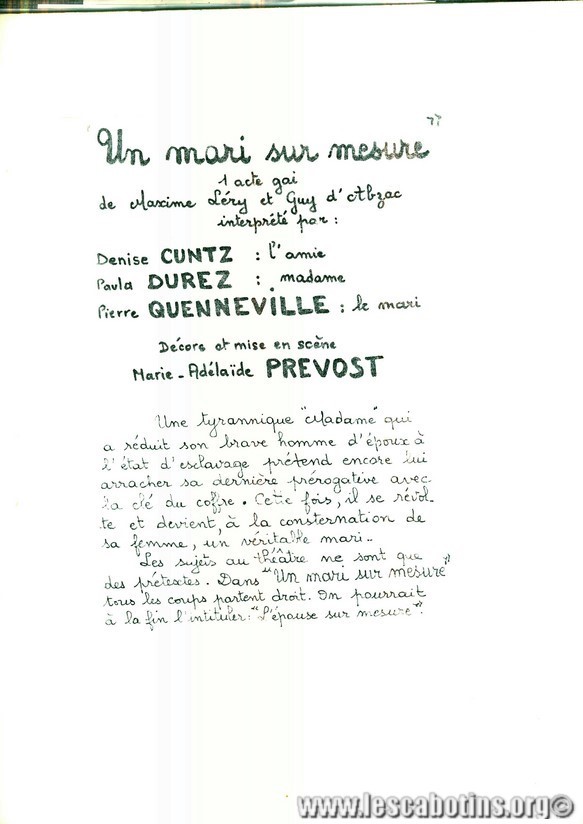 "Un mari sur mesure"
1 acte gai
de Maxime Léry et Guy d'Abzac
interprété par :
Denise CUNTZ : l'amie
Paula DUREZ : madame
Pierre QUENNEVILLE : le mari
Décors et mise en scène
Marie-Adélaïde PREVOST
Une tyrannique "Madame" qui
a réduit son brave homme d'époux à
l'état d'esclavage prétend encore lui
arracher sa dernière prérogative avec
la clé du coffre. Cette fois, il se révol-
te et devient, à la consternation de
sa femme, un véritable mari..
Les sujets au théâtre ne sont que
des prétextes. Dans "Un mari sur mesure"
tous les coups partent droit. On pourrait
à la fin l'intituler : "L'épouse sur mesure".
www.lescabotins.org©